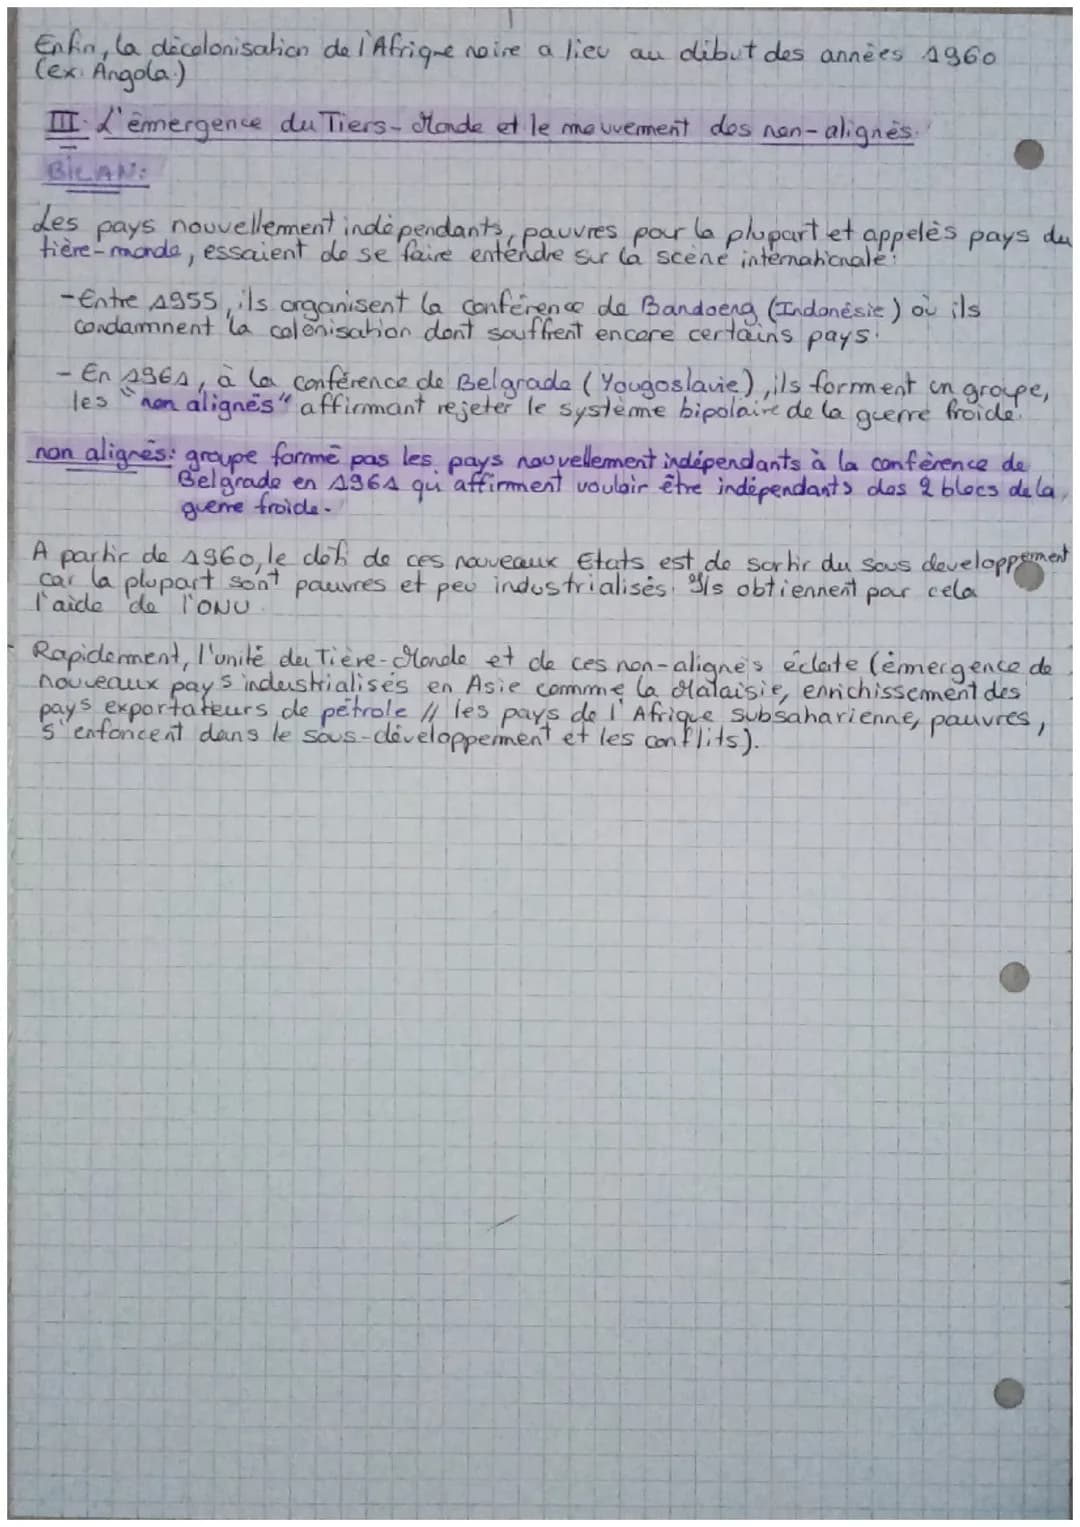 Enfin, la décolonisation de l'Afrique noire a lieu au début des années 1960
(ex: Angola.)
III. L'émergence du Tiers-Monde et le mouvement des non-alignés.
BILAN:
Les pays nouvellement indépendants, pauvres pour la plupart et appelés pays du
tière-monde, essaient de se faire entendre sur la scène internationale:
-Entre 1955, ils organisent la conférence de Bandoeng (Indonésie) où ils
condamnent la colonisation dont souffrent encore certains pays.
- En 1961, à la conférence de Belgrade (Yougoslavie), ils forment un groupe,
les "non alignés" affirmant rejeter le système bipolaire de la guerre froide.
non alignés: groupe formé pas les pays nouvellement indépendants à la conférence de
Belgrade en 1961 qui affirment vouloir être indépendants des 2 blocs de la
guerre froide.
A partir de 1960, le défi de ces nouveaux Etats est de sortir du sous developpement
car la plupart sont pauvres et peu industrialisés. Ils obtiennent pour cela
l'aide de l'ONU.
Rapidement, l'unité du Tière-Monde et de ces non-alignés éclate (émergence de
nouveaux pays industrialisés en Asie comme la Malaisie, enrichissement des
pays exportateurs de pétrole // les pays de l'Afrique subsaharienne, pauvres,
s'enfoncent dans le sous-développement et les conflits).